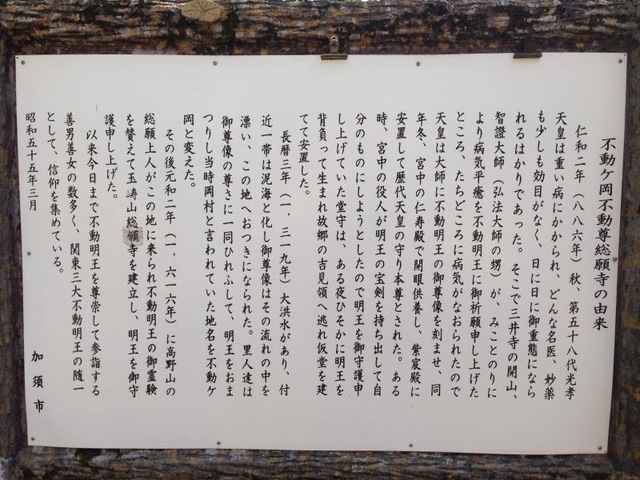 不動ヶ岡不動尊總願寺の由来
仁和二年（八八六年）秋、第五十八代光孝
天皇は重い病にかかられ、どんな名医、妙薬
も少しも効目がなく、日に日に御重態になら
れるばかりであった。そこで三井寺の開山、
智證大師（弘法大師の甥）が、みことのりに
より病気平癒を不動明王に御祈願申し上げた
ところ、たちどころに病気がなおられたので
天皇は大師に不動明王の御尊像を刻ませ、同
年冬、宮中の仁寿殿で開眼供養し、紫宸殿に
安置して歴代天皇の守り本尊とされた。ある
時、宮中の役人が明王の宝剣を持ち出して自
分のものにしようとしたので明王を御守護申
し上げていた堂守は、ある夜ひそかに明王を
背負って生まれ故郷の吉見領へ逃れ仮堂を建
てて安置した。
長暦三年（一、三一九年）大洪水があり、付
近一帯は泥海と化し御尊像はその流れの中を
漂い、この地へおつきになられた。里人達は
御尊像の尊さに一同ひれふして、明王をおま
つりし当時岡村と言われていた地名を不動ヶ
岡と変えた。
その後元和二年（一、六一六年）に高野山の
総願上人がこの地に来られ不動明王の御霊験
を賛えて玉嶹山總願寺を建立し、明王を御守
護申し上げた。
以来今日まで不動明王を尊崇して参詣する
善男善女の数多く、関東三大不動明王の随一
として、信仰を集めている。
昭和五十五年三月
加須市